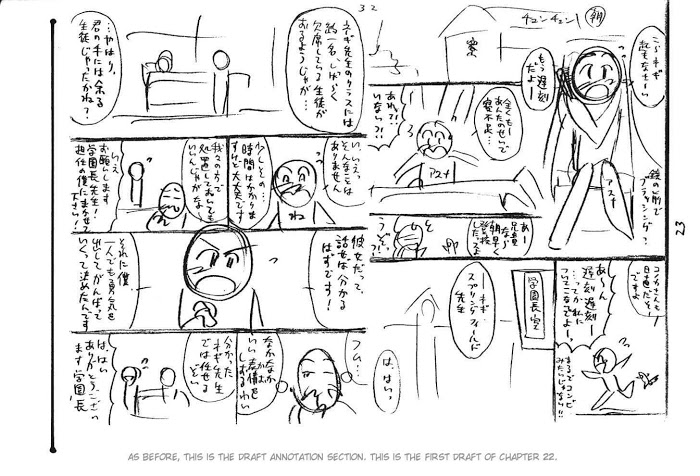 32
23
朝
チュンチュン
寮
こらネギ
起きなさーい
もう遅刻
だよー
鏡の前で
ブラッシング?
アスナ
全くもー
あんたのせいで
寝不よ…
あれ?!
いない?!
アスナ
あー
兄貴
なら
朝早く
登校
したっスよ
うそっ?!
コノカさんも
日直だそー
ですよ
あ〜ん
遅刻遅刻ー
…ってか私に
ついてこないでよー
まるでコンビ
みたいじゃない!!
学園長室
ーネギ
スプリングフィールド
先生
は、はいっ
ネギ先生のクラスには
約一名しばらく
欠席している生徒が
おるようじゃが…
…やはり、
君の手には余る
生徒じゃったかね?
い、いいえ、
そんなことは
ありません
少しその…
時間はかかりま
すけど大丈夫です
ね
我々の方で
処置してもいいん
じゃがな
いいえ
お願いします
学園長先生!
担任の僕にまかせて
下さい!
彼女だって、
話せば分かる
はずです!
それに僕
一人でも勇気を
出してがんばって
いくって決めたんです
フム…
なかなか
いい表情を
しおるわい
分かった
ネギ先生
では任せる
ぞい
は、はい
ありがとうござい
ます学園長
AS BEFORE, THIS IS THE DRAFT ANNOTATION SECTION. THIS IS THE FIRST DRAFT OF CHAPTER 22.